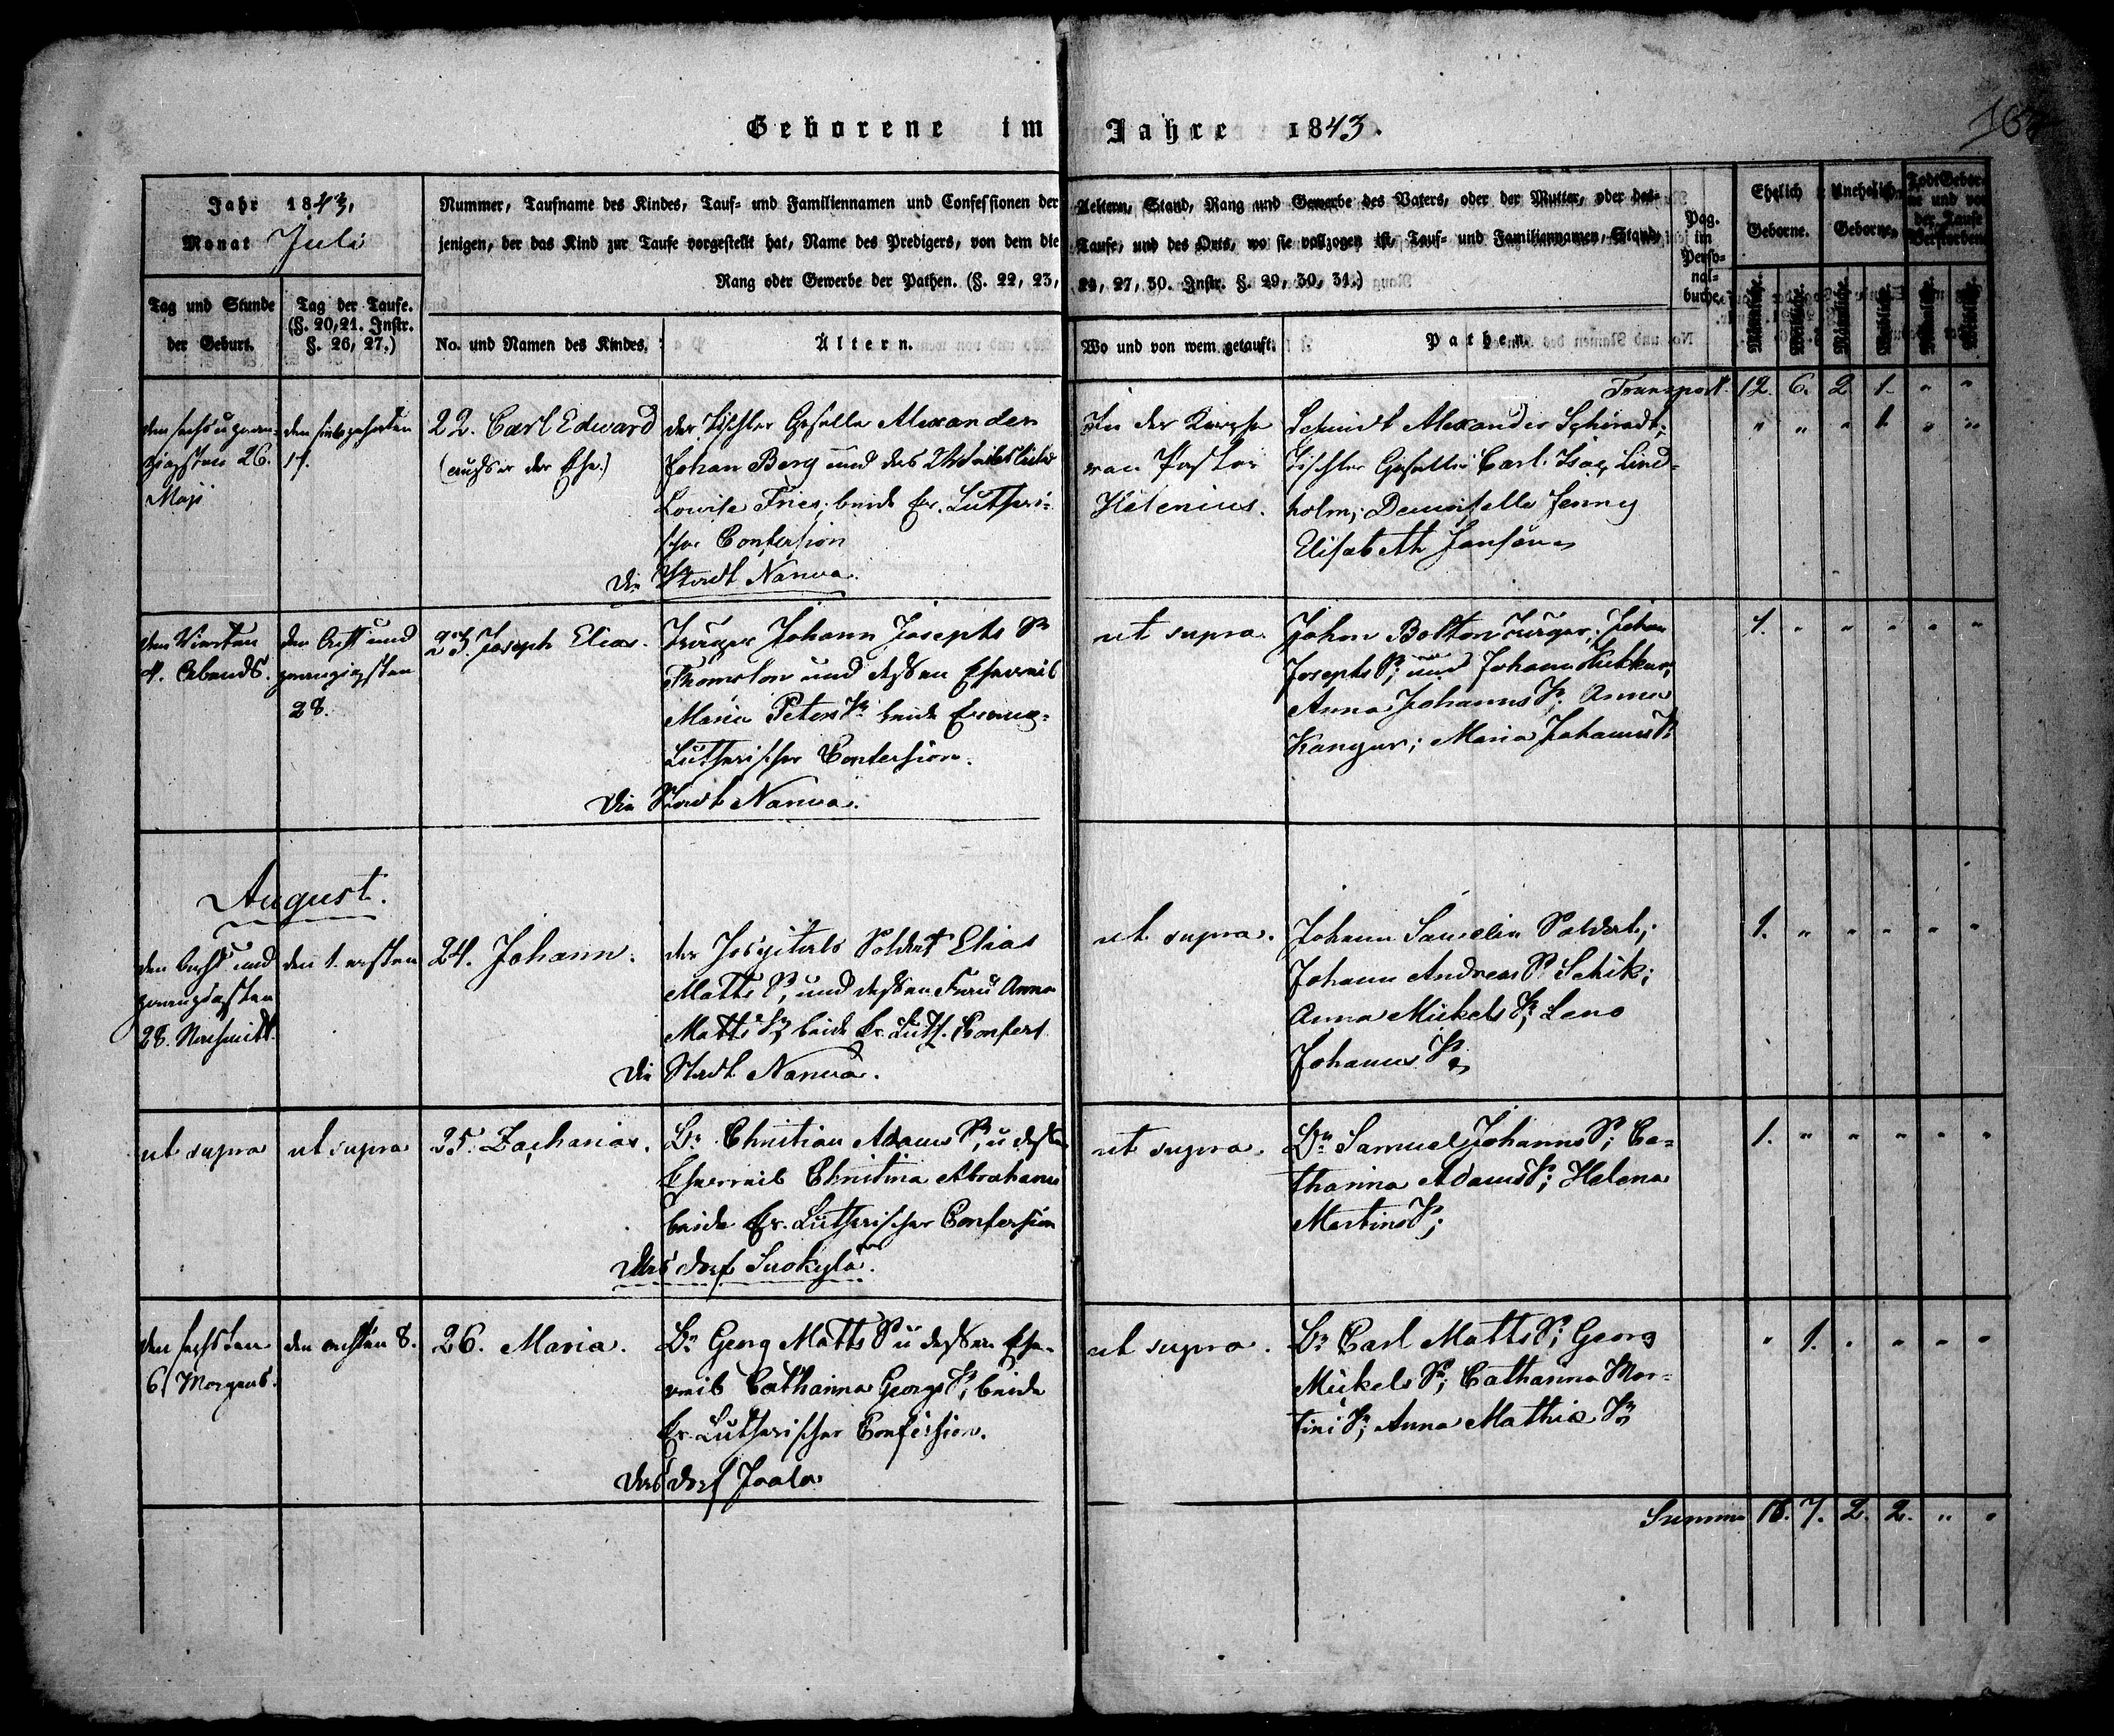 Geborene im Jahre 1843.
Jahr 1843,
Monat Juli
Nummer, Taufname des Kindes, Tauf- und Familiennamen und Confessionen der Aeltern, Stand, Rang und Gewerbe des Vaters, oder der Mutter, oder des-
jenigen, der das Kind zur Taufe vorgestellt hat, Name des Predigers, von dem die Taufe, und des Orts, wo sie vollzogen ist, Tauf- und Familiennamen, Stand,
Rang oder Gewerbe der Pathen. (§. 22, 23, 27, 30. Instr. §. 29, 30, 31.)
Pag.
im
Perso-
nal-
buche.
Ehelich
Geborne.
Unehelich
Geborne.
TodtGebor-
ne und vor
der Taufe
Verstorbene
Tag und Stunde
der Geburt.
Tag der Taufe.
(§. 20, 21. Instr.
§. 26, 27.)
No. und Namen des Kindes.
Ältern.
Wo und von wem getauft.
Pathen.
Männliche.
Weibliche.
Männliche.
Weibliche.
Männliche.
Weibliche.
Transport. 12. 6. 2 1. " "
den sechs u zwan-
zigsten 26.
Maji
den siebzehnten
17.
22. Carl Edward
(außer der Ehe.)
der Tischler Geselle Alexander
Johan Berg und das
Lowise Fries; beide Ev. Lutheri-
scher Confession
Die Stadt Narwa.
In der Kirche
von Pastor
Helenius.
Schmidt Alexander Schmidt;
Tischler Geselle Carl Isac Lind-
holm; Demoiselle Jenny
Elisabeth
" " " 1. " "
den Vierten
4. Abends.
den Acht und
zwanzigsten
28.
23. Joseph Elias.
Johann Josephs S
und dessen Eheweib
Maria Peters T beide Evang-
Lutherischer Confession.
Die Stadt Narwa.
ut supra
John Bolton Johan
Josephs S; und Johann
Anna Johanns T; Anna
Maria Johanns T:
1. " " " " "
August.
den Acht und
zwanzigsten
28. Nachmitt.
den 1. ersten
24. Johann.
der Hospitals Soldat Elias
Matts S; und dessen Frau Anna
Matts T; beide Ev. Luth. Confess
Die Stadt Narwa.
ut supra.
Johann Soldat;
Johann Andreas S Schik;
Anna Mickels T; Leno
Johanns T
1. " " " " "
ut supra
ut supra
25. Zacharias.
Br Christian Adams S; u dessen
Eheweib Christina Abrahams
beide Ev. Lutherischer Confession
Das Dorf Suokylä.
ut supra.
Br Samuel Johanns S; Ca-
tharina Adams T; Helena
Martins T;
1. " " " " "
den sechsten
6 Morgens.
den achten 8.
26. Maria.
Br Georg Matts S u dessen Ehe-
weib Catharina Georgs T; beide
Ev. Lutherischer Confession.
Das Dorf Joala
ut supra.
Br Carl Matts S; Georg
Mickels S; Catharina Mar-
tini T; Anna Mathis T
" 1. " " " "
Summa 15. 7. 2. 2. " "